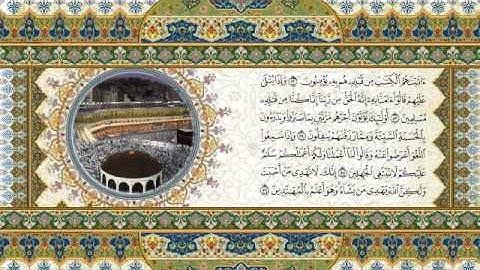 ءَاتَيْنَٰهُمُ ٱلْكِتَٰبَ مِن قَبْلِهِۦ هُم بِهِۦ يُؤْمِنُونَ ٥٢ وَإِذَا يُتْلَىٰ
عَلَيْهِمْ قَالُوٓا۟ ءَامَنَّا بِهِۦٓ إِنَّهُ ٱلْحَقُّ مِن رَّبِّنَآ إِنَّا كُنَّا مِن قَبْلِهِۦ
مُسْلِمِينَ ٥٣ أُو۟لَٰٓئِكَ يُؤْتَوْنَ أَجْرَهُم مَّرَّتَيْنِ بِمَا صَبَرُوا۟ وَيَدْرَءُونَ
بِٱلْحَسَنَةِ ٱلسَّيِّئَةَ وَمِمَّا رَزَقْنَٰهُمْ يُنفِقُونَ ٥٤ وَإِذَا سَمِعُوا۟
ٱللَّغْوَ أَعْرَضُوا۟ عَنْهُ وَقَالُوا۟ لَنَآ أَعْمَٰلُنَا وَلَكُمْ أَعْمَٰلُكُمْ سَلَٰمٌ
عَلَيْكُمْ لَا نَبْتَغِى ٱلْجَٰهِلِينَ ٥٥ إِنَّكَ لَا تَهْدِى مَنْ أَحْبَبْتَ
وَلَٰكِنَّ ٱللَّهَ يَهْدِى مَن يَشَآءُ وَهُوَ أَعْلَمُ بِٱلْمُهْتَدِينَ ٥٦